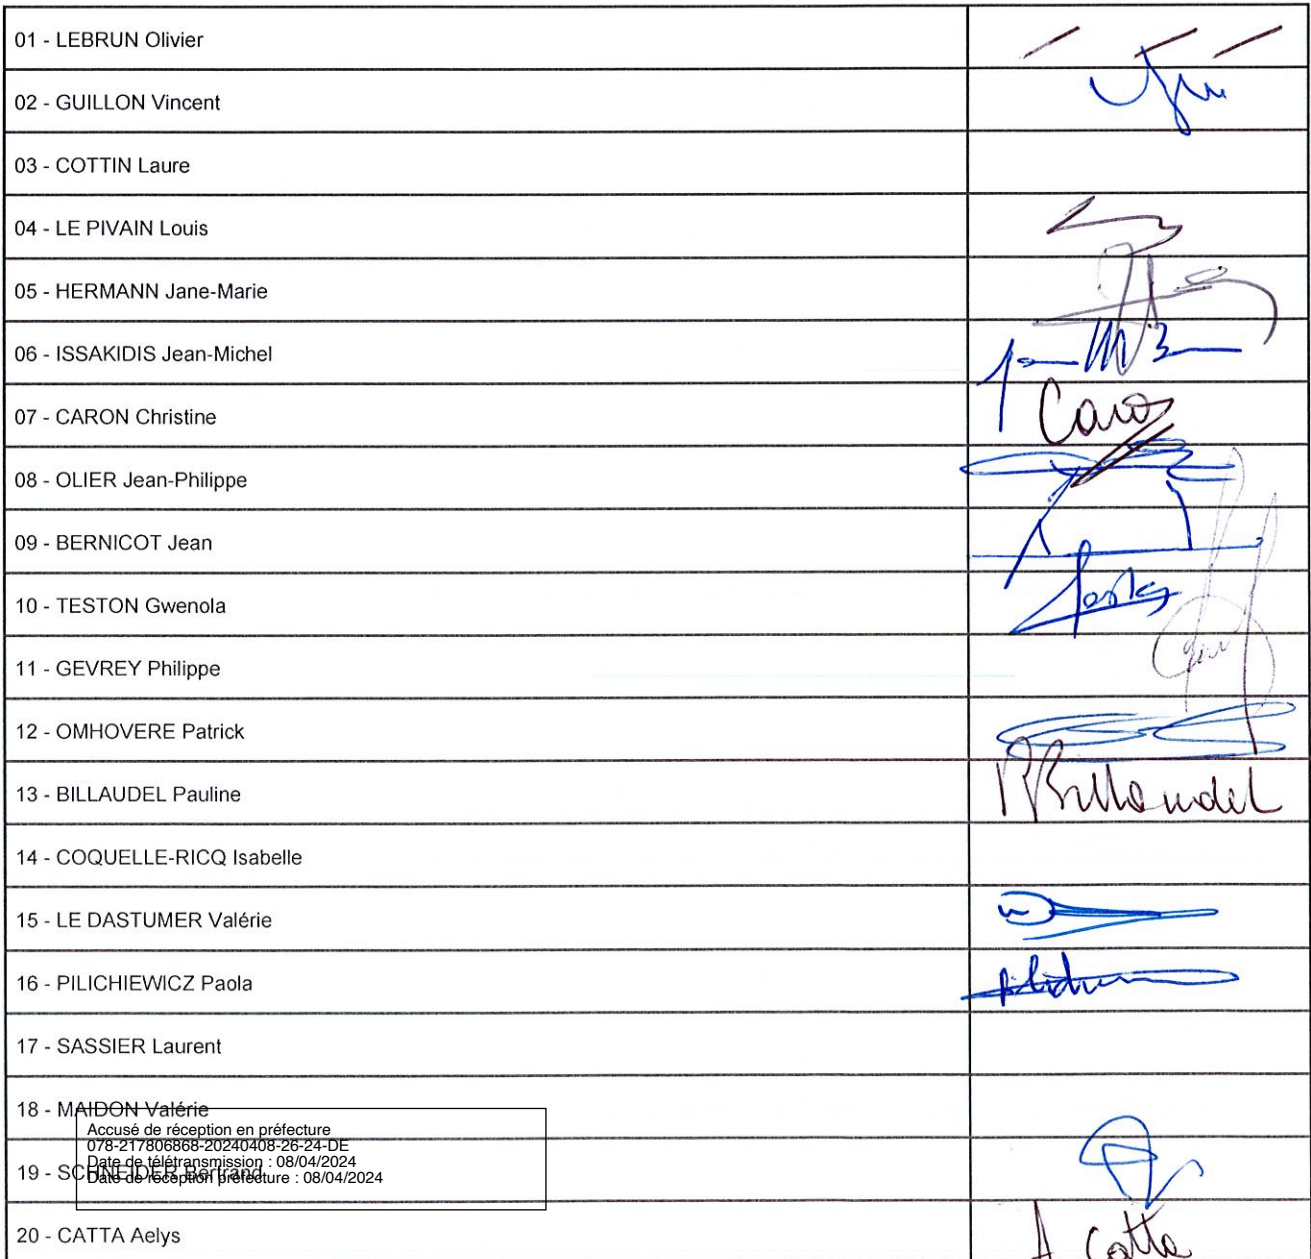 01 - LEBRUN Olivier
02 - GUILLON Vincent
03 - COTTIN Laure
04 - LE PIVAIN Louis
05 - HERMANN Jane-Marie
06 - ISSAKIDIS Jean-Michel
07 - CARON Christine
Caron
08 - OLIER Jean-Philippe
09 - BERNICOT Jean
10 - TESTON Gwenola
11 - GEVREY Philippe
12 - OMHOVERE Patrick
13 - BILLAUDEL Pauline
PBillaudel
14 - COQUELLE-RICQ Isabelle
15 - LE DASTUMER Valérie
16 - PILICHIEWICZ Paola
17 - SASSIER Laurent
18 - MAIDON Valérie
Accusé de réception en préfecture
078-217806868-20240408-26-24-DE
Date de télétransmission : 08/04/2024
19 - SCHNEIDER Bertrand
Date de réception préfecture : 08/04/2024
20 - CATTA Aelys
A Catta